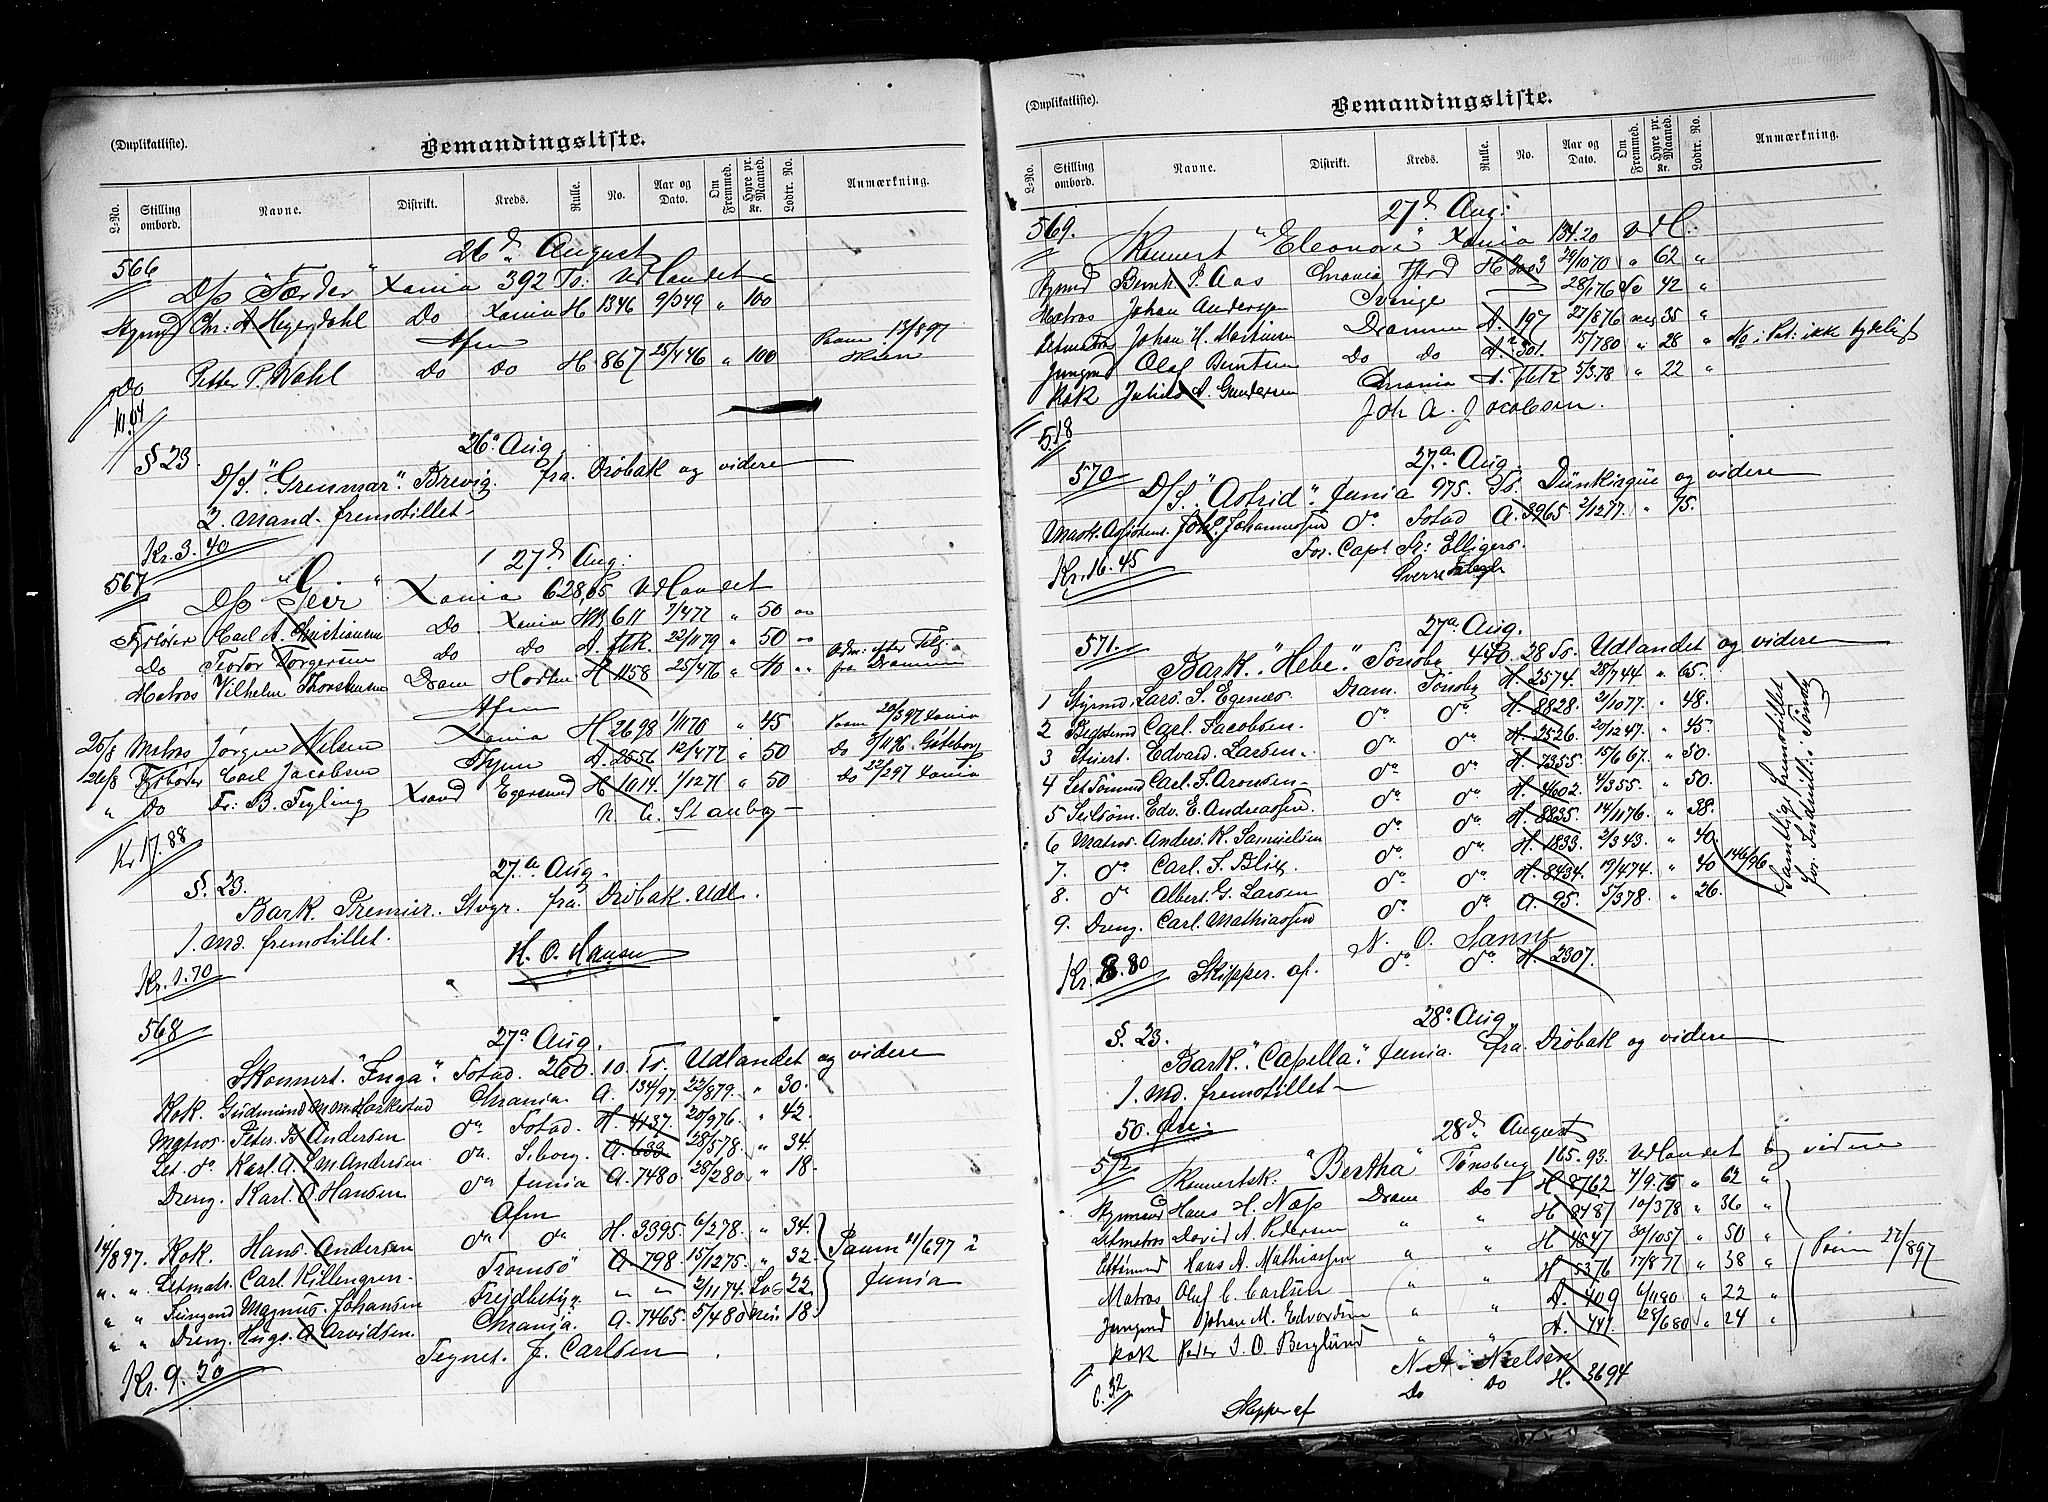 (Duplikatliste).
Bemandingsliste.
L-No. Stilling ombord. Navne. Distrikt. Kreds. Rulle. No. Aar og Dato. Om Fremmed. Hyre pr. Maaned. Kr. Lodtr. No. Anmærkning.
26d August
566
D/s "Færder" Xania 392 Ts: Udlandet
Styrmd Chr: A Heyerdahl Do Xania H 1346 9/349 " 100
Afm
Do Petter P. Wahl Do Do H. 867 25/446 " 100 Paam 13/897
10.04
26a Aug.
§ 23.
D/S. "Grenmar". Brevig. fra Drøbak og videre
2. Mand. fremstillet
Kr. 3.40
27d Aug:
567
D/s "Geir" Xania 628,65 Udlandet
Fyrbøter Carl A. Christiansen Do Xania 611 7/477 " 50
Do Teodor Torgersen Do Do A. 22/1179 " 50
Matros Vilhelm Thorstensen Dram Horten H 1158 25/476 " 40 fra Drammen
Afm
25/8 Matros Jørgen Nilsen Xania H 2698 1/1170 " 45 Paam 20/397 Xania
26/8 Fyrbøter Carl Jacobsen A. 2556 12/477 " 50 Do Göteborg
" Do Fr: B. Feyling Xsand Egersund H 1014 1/1271 " 50 Do 22/297 Xania
Kr 17.88
27.a Aug.
§. 23.
Bark. Premier. Stvgr. fra Drøbak. Udl.
1. Md. fremstillet.
H. O. Hansen
Kr. 1.70
568
27a Aug.
Skonnert. "Inga". Fstad. 260.10 Ts. Udlandet og videre
Kok. Gudmund Chrania. A. 134/97. 22/879. " 30.
Matros. Peter. B Andersen do Fstad. H. 4137. 20/976. " 42
Let. do Karl. A. M Andersen do. A. 633 28/578. " 34
Dreng. Karl. O Hansen do Junia A. 7480 28/280 " 18.
Afm
14/897. Kok. Hans. Andersen do do H. 3395. 6/278. " 34. Paam 11/697 i
" " Letmatr. Carl. Killengren. Tromsö A. 798. 15/1275. " 32. Junia
" " Jungmd Magnus. Johansen " " 2/1174. Sv 22
" " Dreng. Hugo. A Arvidsen. Chrania. A. 7465. 5/480 nei 18.
Kr. 9.20
Tegnet. J. Carlsen
(Duplikatliste).
Bemandingsliste.
L-No. Stilling ombord. Navne. Distrikt. Kreds. Rulle. No. Aar og Dato. Om Fremmed. Hyre pr. Maaned. Kr. Lodtr. No. Anmærkning.
27d Aug:
569.
Skonnert "Eleonore" Xania 134.20 Udl.
Styrmd Bernt P. Aas Chrania H 3003 29/1070 " 62 "
Matros Johan Anderssen Sverige 28/176 Sv 42 "
Letmatr Johan H. Martinsen Drammen A. 197 27/876 nei 35 "
Jungmd Olaf Berntsen Do Do A. 301. 15/780 " 28 " No: i Pat: ikke tydeligt
Kok Julius A. Gundersen Chrania A. 5/378 " 22 "
Joh A. J. Jacobsen.
5.18
27.a Aug
570
D/S. "Astrid". Junia 975. Ts. Dünkirque og videre
Mask. Assistent. Joh. Johannessen do. Fstad A. 3965. 2/1277. " 75.
For. Capt Fr: Elligers.
Sverre
Kr. 16.45
27a Aug.
571.
Bark. "Hebe". Tönsbg 440.28 Ts. Udlandet og videre
1 Styrmd. Lars. S. Egenæs. Dram. Tönsbg H. 2574. 28/744 " 65.
2 Bestmd Carl. Jacobsen. do do. H. 8828. 2/1077. " 48.
3 Stuert. Edvard. Larsen. do do. H. 2526. 20/1247. " 45.
4 Let Tömmd Carl. F. Aronsen do do. H. 7355. 15/667. " 50.
5 Seilsöm. Edv. E. Andreassen. do do. H. 4602. 4/355. " 50.
6 Matros. Anders. K. Samuelsen do. do. H. 8835. 14/1176. " 38.
7. do Carl. F. Blix. do. do. H. 1833. 2/343. " 40.
8. do Albert. G. Larsen do. do. H. 8434. 19/474. " 40 146/96
9. Dreng. Carl. Mathiassen do. do. A. 95. 5/378. " 26.
Samtlige fremstillet for Indrull: i Tönsbg
N. O. Sanne
Kr. 8.80 Skipper. af. do. do. H. 2307.
28a Aug.
§. 23.
Bark. "Capella". Junia. fra Drøbak og videre
1. Md. fremstillet
50. Øre.
28d August
572
Skonnertsk. "Bertha" Tønsberg 165.93. Udlandet og videre
Styrmand Hans H. Næss Dram Do H 8762 7/9.75 " 62 "
Letmatros David A. Pedersen " " H. 8487 10/378 " 36 "
Hans A. Mathiassen " " H 4547 30/1057 " 50 "
Matros Oluf C. Carlsen " " H 5376 17/871 " 38 "
Jungmd Johan M. Edvardsen " " A. 409 6/1180 " 22 "
Kok Peder I. O. Berglund " " A. 741. 28/680 " 24 "
Paam 27/897
N. A. Nielsen
6.32
Skipper af Do Do H. 3694